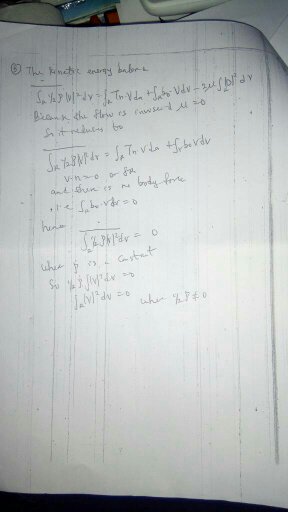 The Kinetic energy balance
∫_R ½ρ|v|² dv = ∫_∂R Tn·v da + ∫_R b₀·v dv - 2μ∫_R |D|² dv
Because the flow is μ = 0
So it reduces to
∫_R ½ρ|v|² dv = ∫_R Tn·v da + ∫_R b₀·v dv
v·n = 0 on ∂R
and there is no body force
i.e ∫_R b₀·v dv = 0
hence
∫_R ½ρ|v|² dv = 0
where ρ is a constant
So ½ρ∫|v|² dv = 0
∫_R |v|² dv = 0 where ½ρ ≠ 0